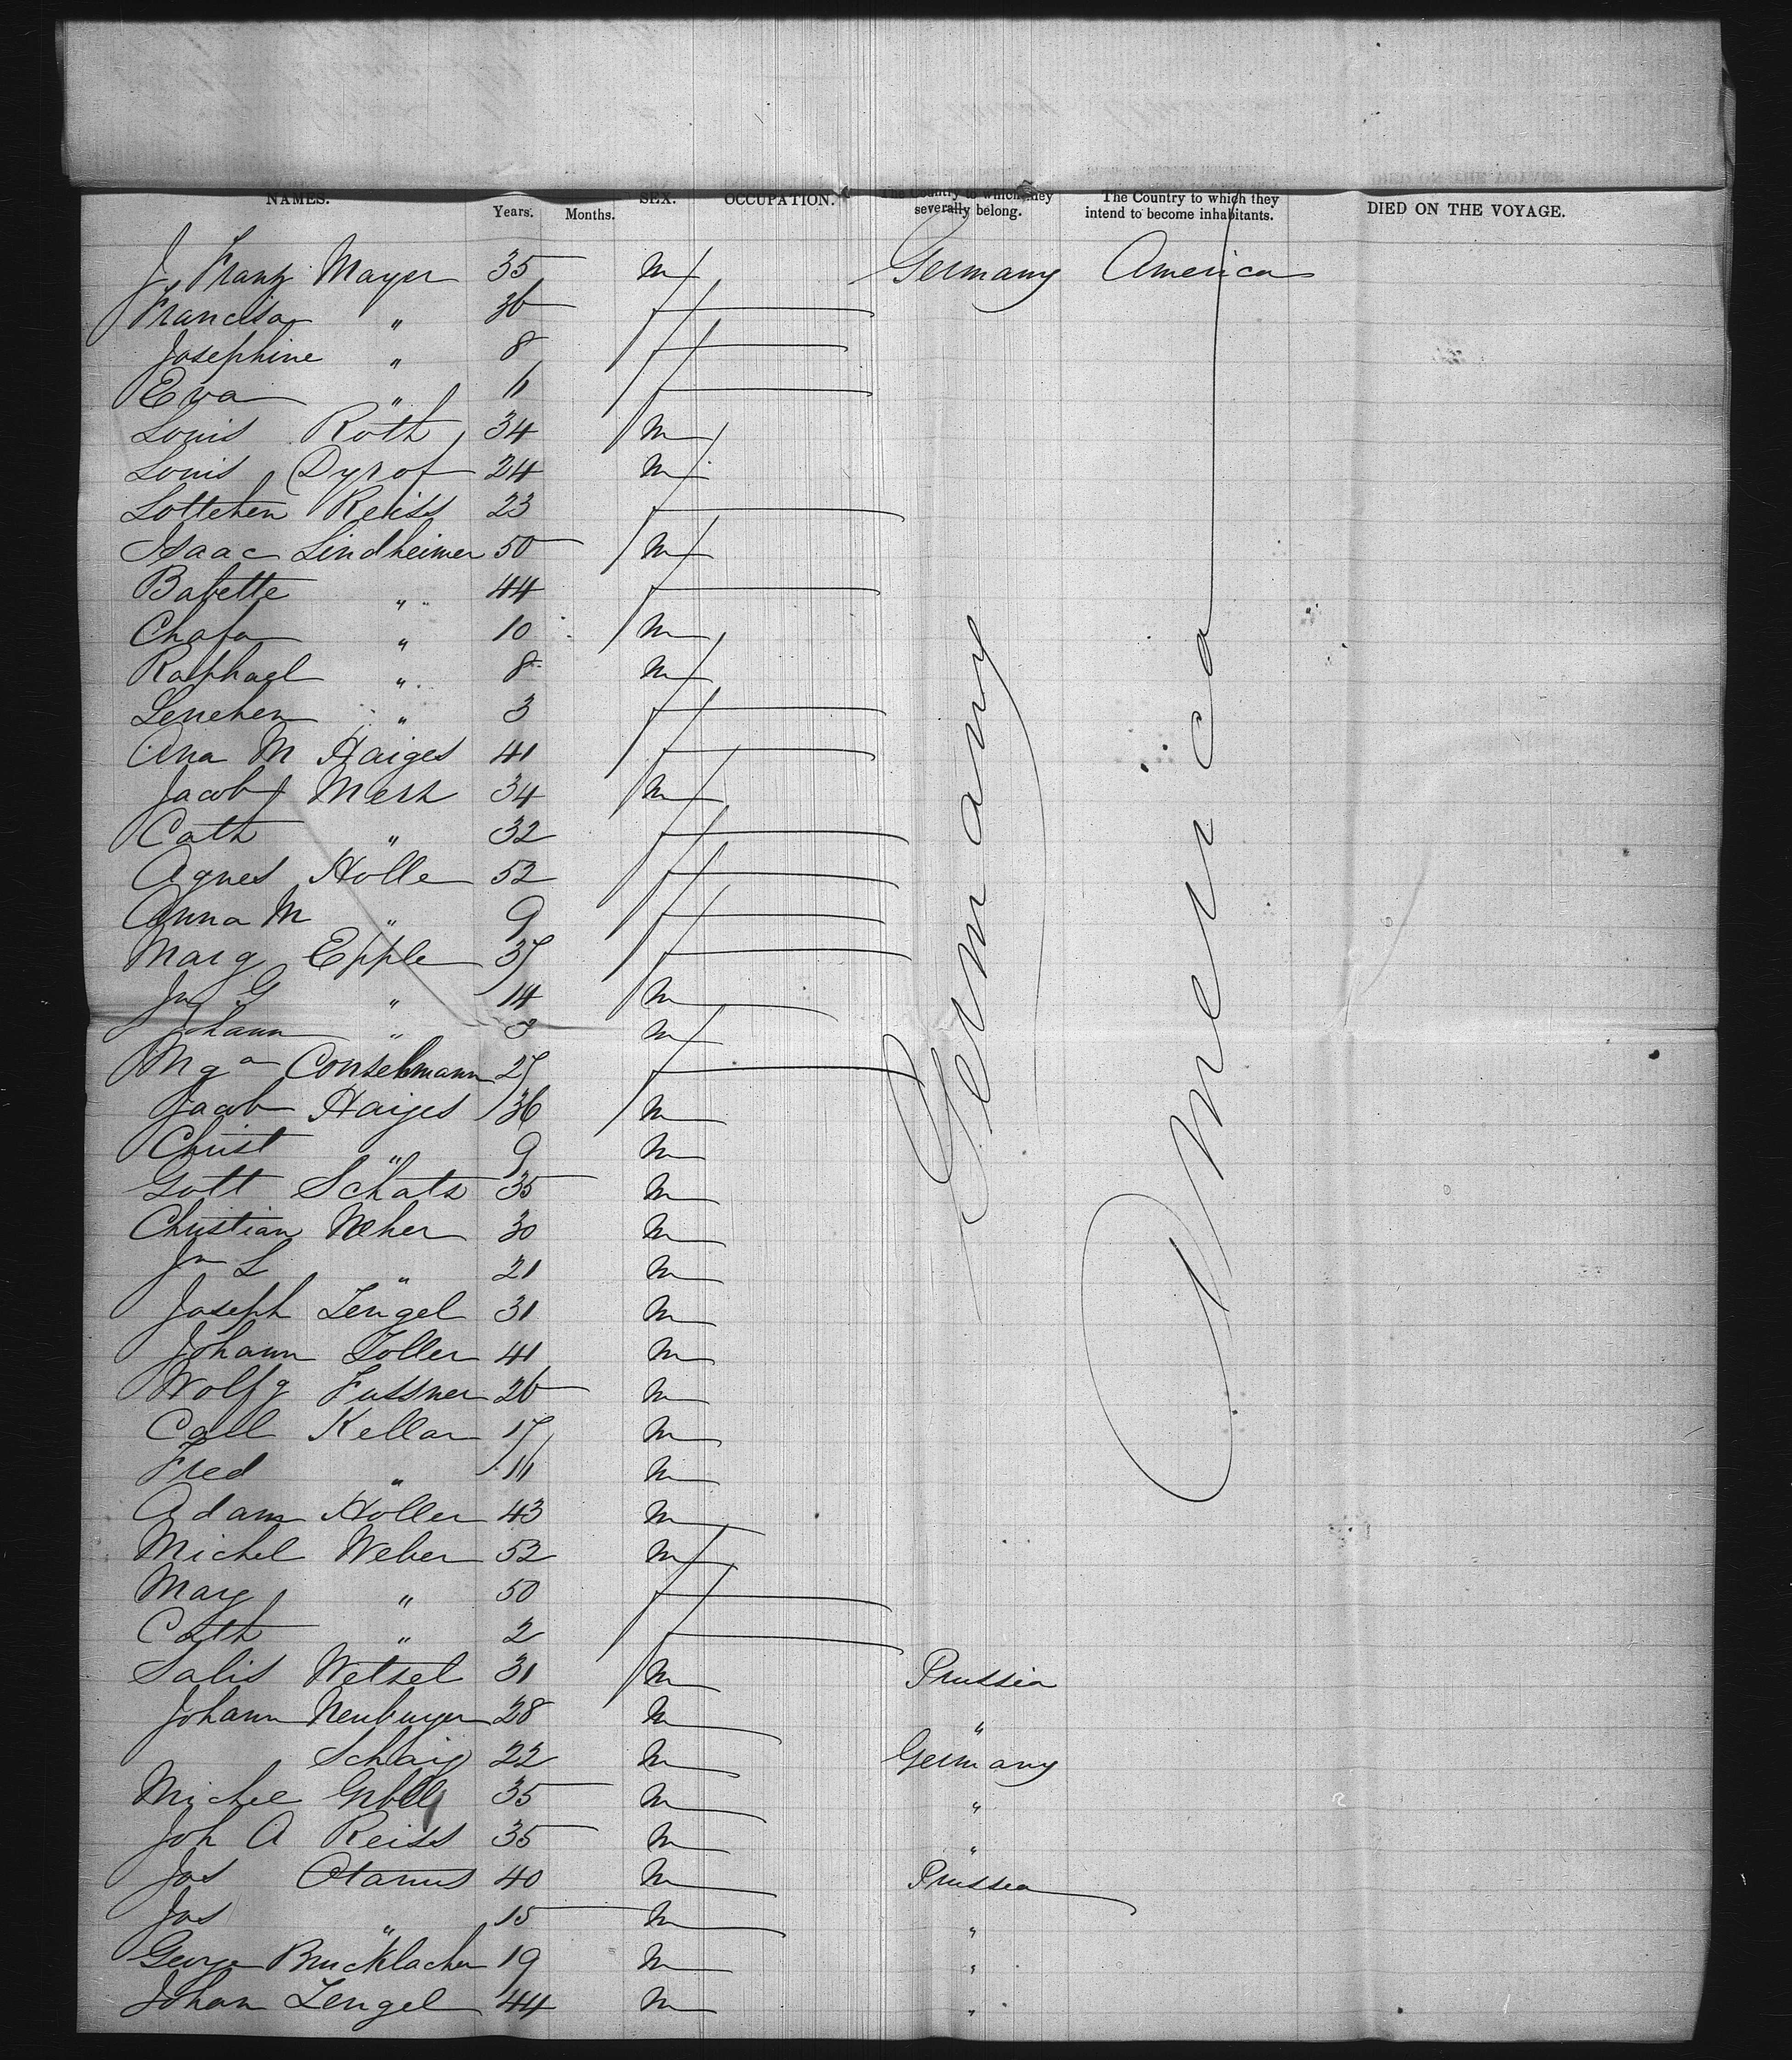 NAMES. Years. Months. SEX. OCCUPATION. The Country to which they severally belong. The Country to which they intend to become inhabitants. DIED ON THE VOYAGE.
J. Franz Mayer 35 m Germany America
Francisa " 36 f
Josephine " 8 f
Eva " 11 f
Louis Roth 34 m
Louis Dyrof 24 m
Lottchen Reiss 23 f
Isaac Lindheimer 50 m
Babette " 44 f
Chafa " 10 m
Ralphael " 8 m
Lenchen " 3 f
Ana M Haiges 41 f
Jacob Merz 34 m
Cath " 32 f
Agnes Holle 52 f
Anna M " 9 f
Marg Epple 37 f
Jn G " 14 m
Johann " 8 m
Mga Conselmann 27 f
Jacob Haiges 36 m
Christ " 9 m
Gott Schatz 35 m
Christian Neher 30 m
Jn L " 21 m
Joseph Zengel 31 m
Johann Zoller 41 m
Wolfg Fussner 26 m
Carl Kellar 17 m
Fred " 11 m
Adam Holler 43 m
Michel Weber 52 m
Marg " 50 f
Cath " 2 f
Germany America
Salis Wetzel 31 m Prussia
Johann Neuburger 28 m "
Schaig 22 m Germany
Michel 35 m "
Joh A Reiss 35 m "
Jos 40 m Prussia
Jos " 15 m "
George Brucklacher 19 m "
Johan Zengel 44 m "